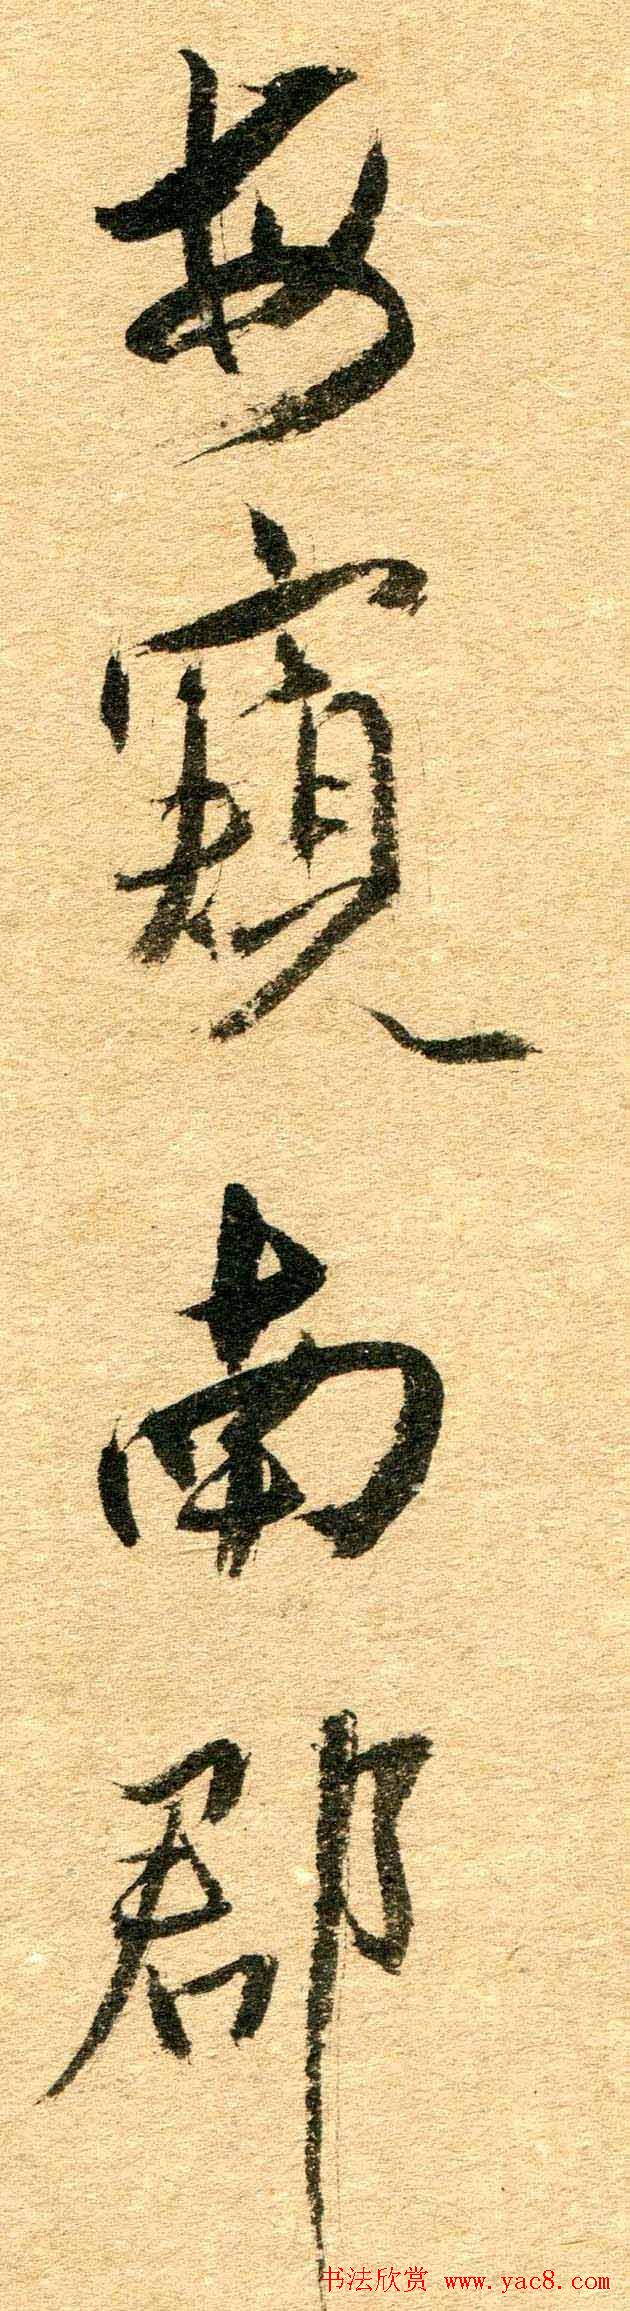 每窺南郡
书法欣赏 www.yac8.com